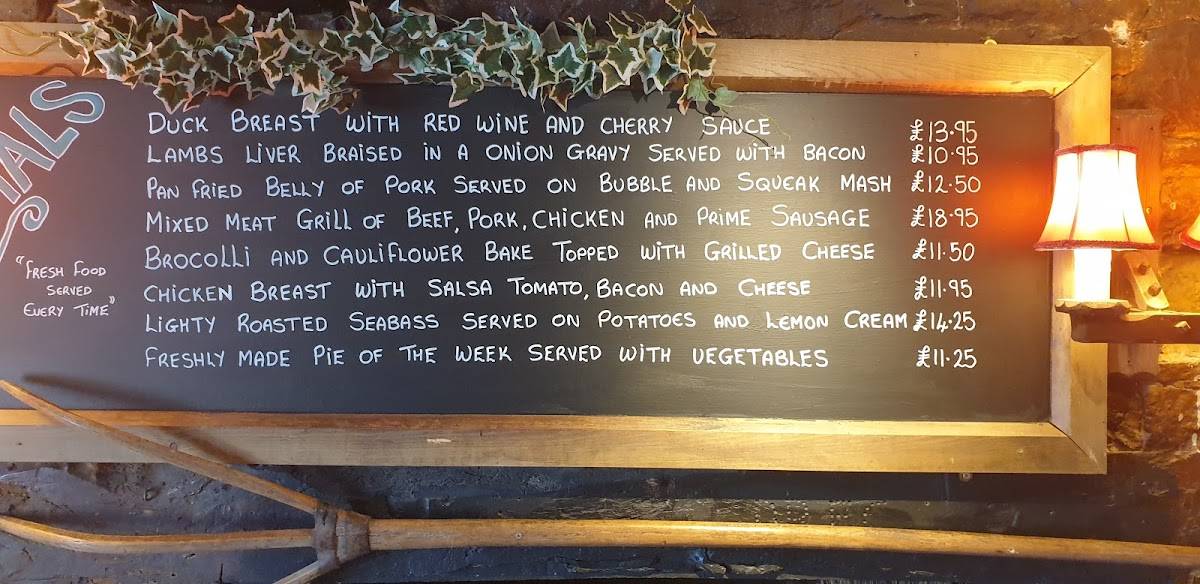 IALS
"FRESH FOOD
SERVED
EVERY TIME"
DUCK BREAST WITH RED WINE AND CHERRY SAUCE £13.95
LAMBS LIVER BRAISED IN A ONION GRAVY SERVED WITH BACON £10.95
PAN FRIED BELLY OF PORK SERVED ON BUBBLE AND SQUEAK MASH £12.50
MIXED MEAT GRILL OF BEEF, PORK, CHICKEN AND PRIME SAUSAGE £18.95
BROCOLLI AND CAULIFLOWER BAKE TOPPED WITH GRILLED CHEESE £11.50
CHICKEN BREAST WITH SALSA TOMATO, BACON AND CHEESE £11.95
LIGHTY ROASTED SEABASS SERVED ON POTATOES AND LEMON CREAM £14.25
FRESHLY MADE PIE OF THE WEEK SERVED WITH VEGETABLES £11.25